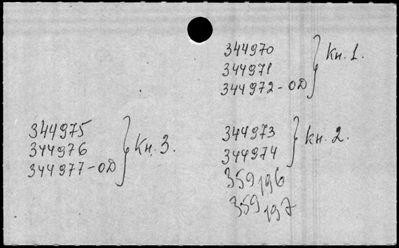 344970
344971 } Кн. 1.
344972-ОД
344973
344974 } Кн. 2.
359196
359197
344975
344976 } Кн. 3.
344977-ОД